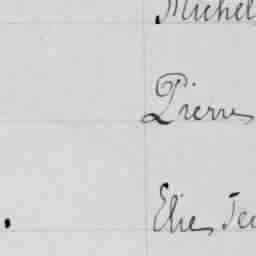 Michel
Pierre
Elie